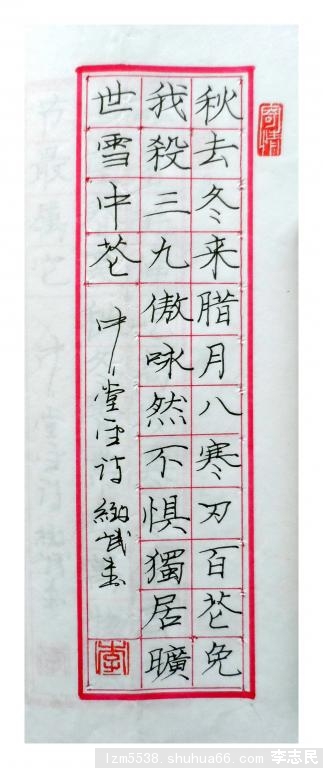 寄情
秋去冬来腊月八寒刃百花免
我殺三九傲咏然不惧獨居曠
世雪中花
堂雪诗 書
李
lzm5538.shuhua66.com 李志民